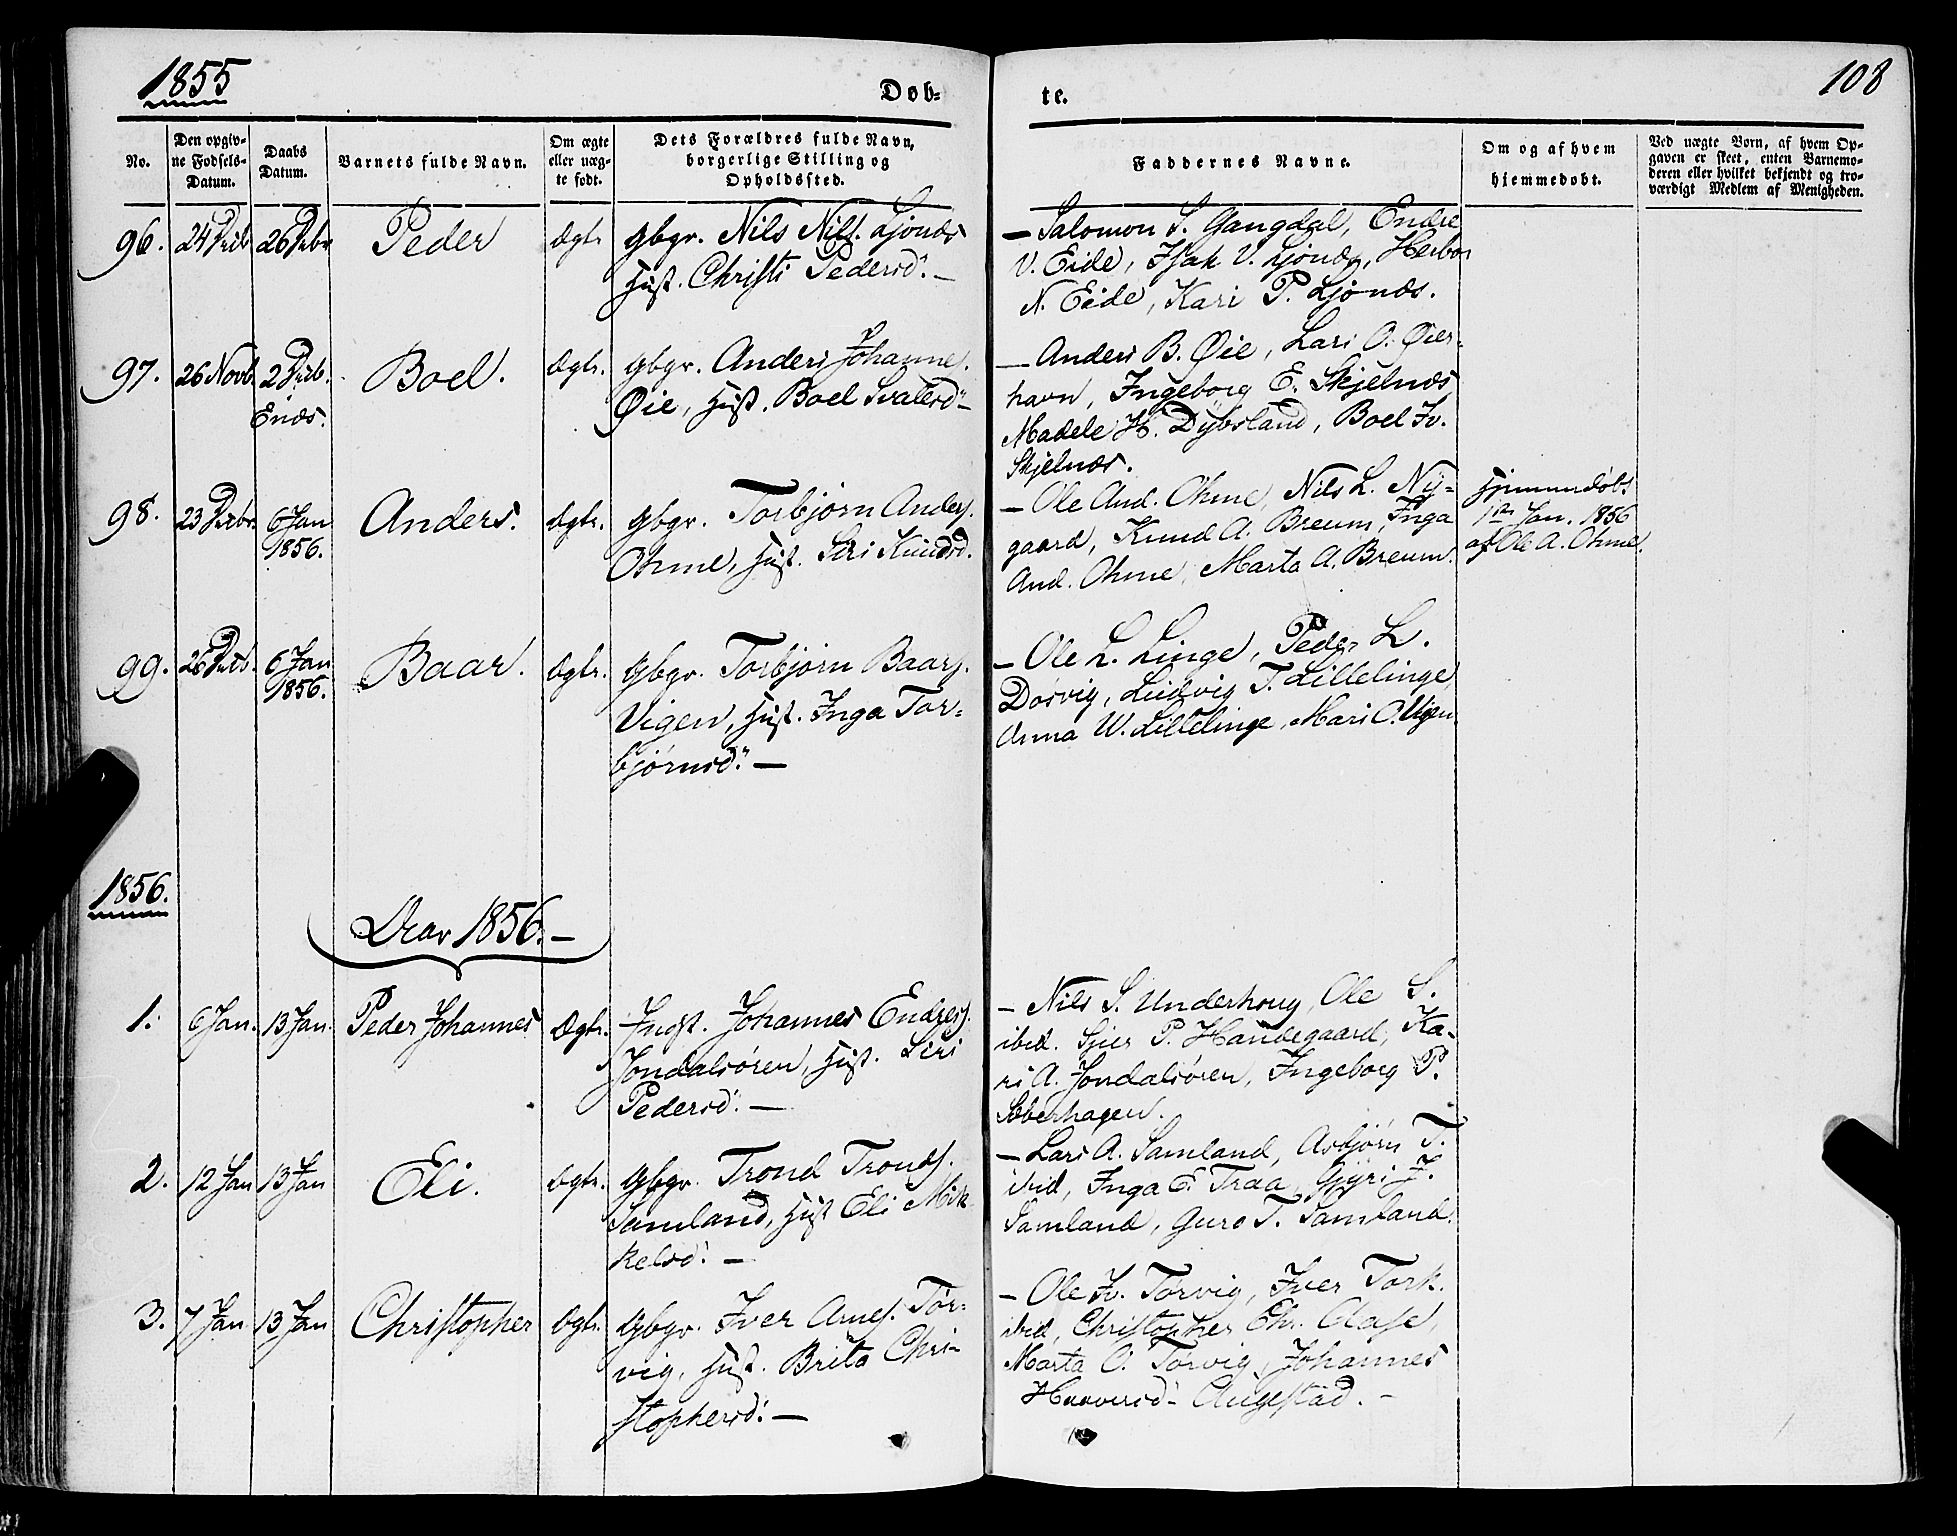 1855
Døb-
te.
108
No.
Den opgiv-
ne Fødsels-
Datum.
Daabs
Datum.
Barnets fulde Navn.
Om ægte
eller uæg-
te født.
Dets Forældres fulde Navn,
borgerlige Stilling og
Opholdssted.
Faddernes Navne.
Om og af hvem
hjemmedøbt.
Ved uægte Børn, af hvem Op-
gaven er skeet, enten Barnemo-
deren eller hvilket bekjendt og tro-
værdigt Medlem af Menigheden.
96.
26 Decbr
Peder
Ægte
gbgr. Nils Nils. Ljonæs
Hust. Christi Pedersd. —
— Salomon S. Gangdal, Endre
V. Eide, Isak V. Ljonæs, Herbor
N. Eide, Kari P. Ljonæs.
97.
26 Novb.
2 Decb.
Enæs.
Boel.
Ægte.
gbgr. Anders Johannes.
Øie, Hust. Boel
— Anders B. Øie, Lars O. Øier-
havn, Ingeborg E. Skjelnæs
Madele H. Dybsland, Boel Iv.
Skjelnæs.
98.
23 Decbr.
6 Jan
1856.
Anders.
Ægte.
gbgr. Torbjørn Anders.
Ohme, Hust. Siri Knudsd.
— Ole And. Ohme, Nils L. Ny-
gaard, Knud A. Breum, Inga
And. Ohme, Marta A. Breum.
Hjemmedøbt
1ste Jan. 1856
af Ole A. Ohme.
99.
6 Jan
1856.
Baar.
Ægte.
gbgr. Torbjørn Baars.
Vigen, Hust. Inga Tor-
bjørnsd. —
— Ole L. Linge, Peder L.
Døsvig, Ludvig T. Lillelinge,
Anna W. Lillelinge, Mari O. Vigen
1856.
Aar 1856. —
1.
6 Jan.
13 Jan.
Peder Johannes
Ægte.
Johannes Endres.
Jondalsøren, Hust. Siri
Pedersd. —
— Nils S. Underhoug, Ole S.
ibid. Sjur P. Handegaard, Ka-
ri A. Jondalsøren, Ingeborg P.
Sæberhagen.
2.
12 Jan
13 Jan
Eli.
Ægte.
gbgr. Trond Tronds.
Samland, Hust Eli Mik-
kelsd. —
— Lars A. Samland, Asbjørn T.
ibid, Inga E. Traa, Gyri J.
Samland, Guro T. Samland.
3.
7 Jan
13 Jan
Christopher
Ægte.
gbgr. Iver Arnes. Tor-
vig, Hust. Brita Chri-
stophersd. —
— Ole Iv. Torvig, Iver Tork.
ibid, Christopher Chr. Aase,
Marta O. Torvig, Johannes
Augestad. —